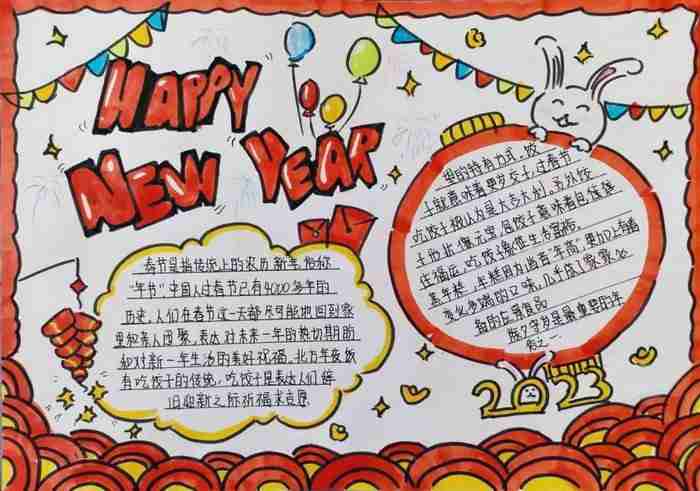 HAPPY
NEW YEAR
春节是指传统上的农历新年,俗称
“年节”,中国人过春节已有4000多年的
历史,人们在春节这一天都尽可能地回到家
里和亲人团聚,表达对未来一年的热切期盼
和对新一年生活的美好祝福。北方年夜饭
有吃饺子的传统,吃饺子是表达人们辞
旧迎新之际祈福求吉愿
的特有方式,饺
子就意味着更岁交子,过春节
吃饺子被认为是大吉大利,另外饺
子形状像元宝,包饺子意味着包住
福运,吃饺子象征生活富裕。
年糕,年糕因为谐音“年高”,更加上有着
变化多端的口味,几乎成了家家必
备的应景食品
之一
2023